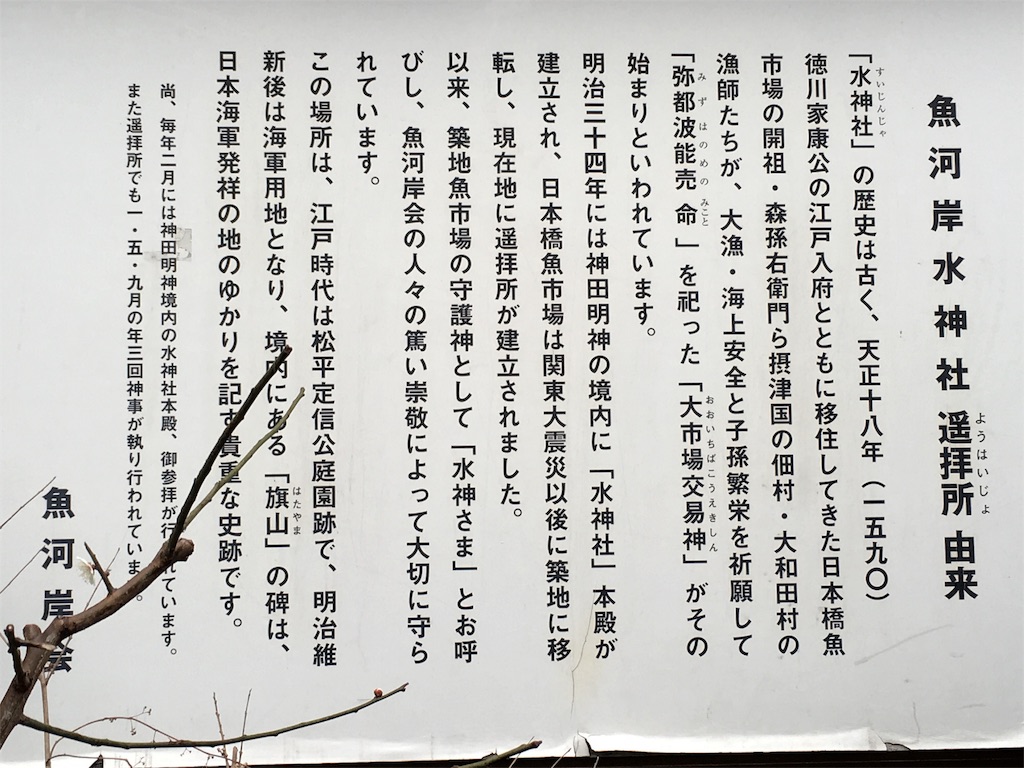 魚河岸水神社遥拝所由来
「水神社」の歴史は古く、天正十八年（一五九〇）
徳川家康公の江戸入府とともに移住してきた日本橋魚
市場の開祖・森孫右衛門ら摂津国の佃村・大和田村の
漁師たちが、大漁・海上安全と子孫繁栄を祈願して
「弥都波能売命」を祀った「大市場交易神」がその
始まりといわれています。
明治三十四年には神田明神の境内に「水神社」本殿が
建立され、日本橋魚市場は関東大震災以後に築地に移
転し、現在地に遥拝所が建立されました。
以来、築地魚市場の守護神として「水神さま」とお呼
びし、魚河岸会の人々の篤い崇敬によって大切に守ら
れています。
この場所は、江戸時代は松平定信公庭園跡で、明治維
新後は海軍用地となり、境内にある「旗山」の碑は、
日本海軍発祥の地のゆかりを記す貴重な史跡です。
尚、毎年二月には神田明神境内の水神社本殿、御参拝が行れています。
また遥拝所でも一・五・九月の年三回神事が執り行われていま。
魚河岸会